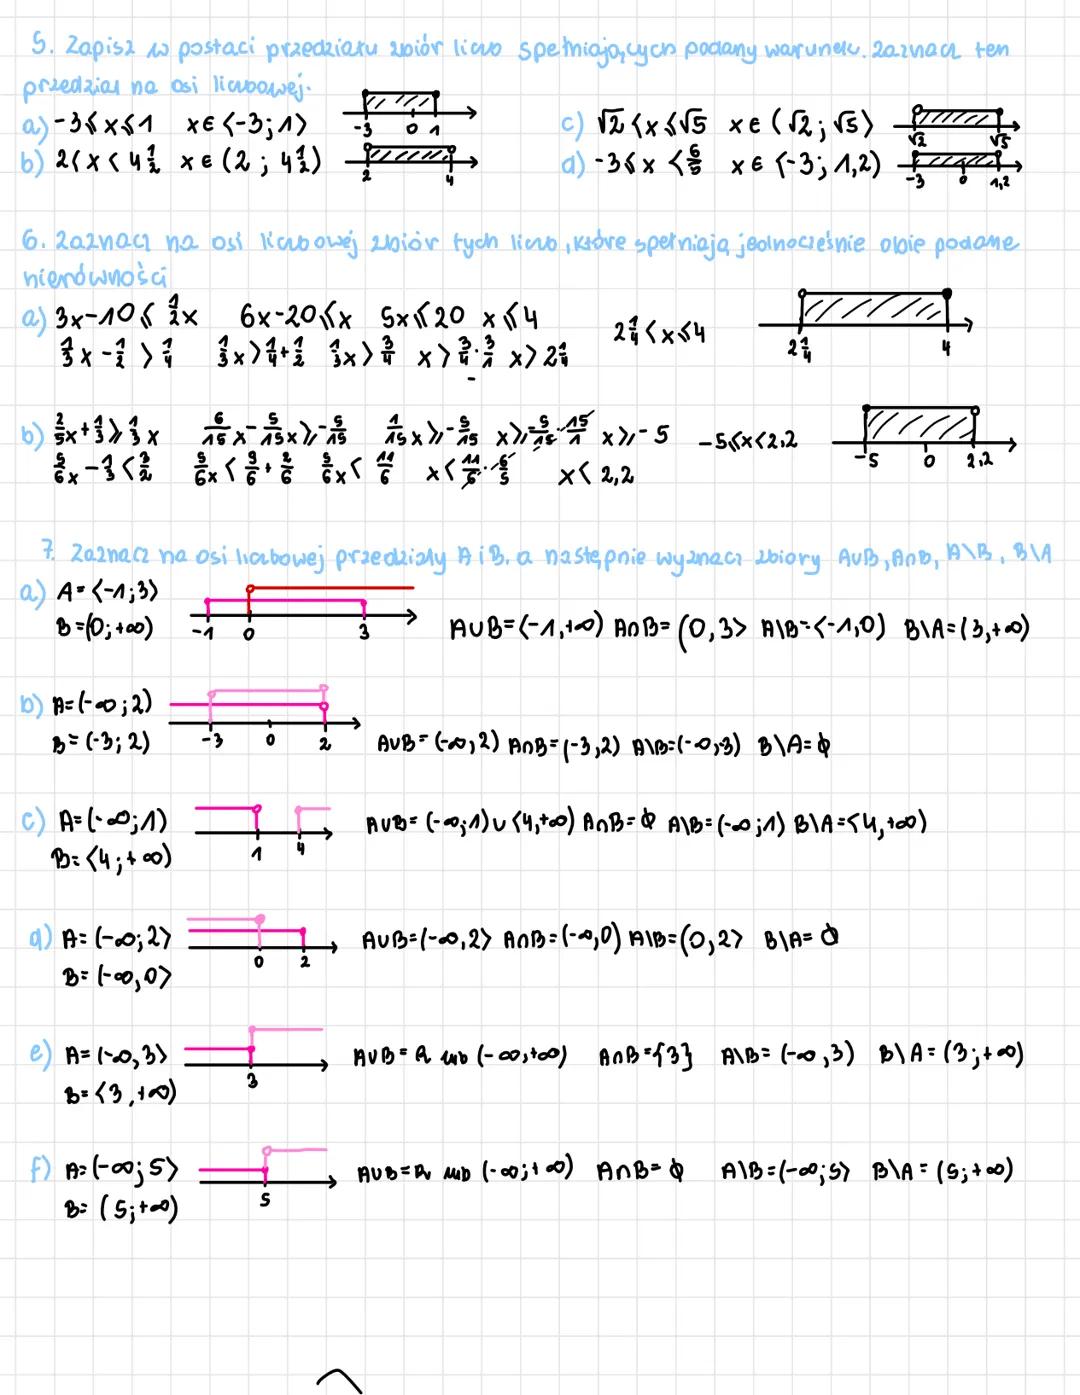 5. Zapisz w postaci przedziału zbiór liczb spełniających podany warunek. Zaznacz ten
przedział na osi liczbowej.
a) -3 ≤ x ≤ 1 x ∈ <-3; 1> -3 0 1
b) 2 < x < 4 1/2 x ∈ (2 ; 4 1/2) 2 4
c) √2 < x ≤ √5 x ∈ (√2 ; √5> √2 √5
d) -3 ≤ x < 6/5 x ∈ <-3; 1,2) -3 0 1,2
6. Zaznacz na osi liczbowej zbiór tych liczb, które spełniają jednocześnie obie podane
nierówności
a) 3x-10 ≤ 1/2x 6x-20 ≤ x 5x ≤ 20 x ≤ 4
1/3x - 1/2 > 1/4 1/3x > 1/4 + 1/2 1/3x > 3/4 x > 3/4 · 3/1 x > 2 1/4
2 1/4 < x ≤ 4 2 1/4 4
b) 2/5x + 1/3 ≥ 1/3x 6/15x - 5/15x ≥ -5/15 1/15x ≥ -5/15 x ≥ -5/15 · 15/1 x ≥ -5 -5 ≤ x < 2,2
5/6x - 1/3 < 3/2 5/6x < 9/6 + 2/6 5/6x < 11/6 x < 11/6 · 6/5 x < 2,2 -5 0 2,2
7. Zaznacz na osi liczbowej przedziały A i B, a następnie wyznacz zbiory A∪B, A∩B, A\B, B\A
a) A = <-1; 3>
B = (0; +∞) -1 0 3 A∪B = <-1, +∞) A∩B = (0, 3> A\B = <-1, 0) B\A = (3, +∞)
b) A = (-∞; 2)
B = (-3; 2) -3 0 2 A∪B = (-∞, 2) A∩B = (-3, 2) A\B = (-∞, -3) B\A = ∅
c) A = (-∞; 1) A∪B = (-∞; 1) ∪ <4, +∞) A∩B = ∅ A\B = (-∞; 1) B\A = <4, +∞)
B = <4; +∞) 1 4
d) A = (-∞; 2> A∪B = (-∞, 2> A∩B = (-∞, 0) A\B = (0, 2> B\A = ∅
B = (-∞, 0> 0 2
e) A = (-∞, 3> A∪B = R lub (-∞, +∞) A∩B = {3} A\B = (-∞, 3) B\A = (3; +∞)
B = <3, +∞) 3
f) A = (-∞; 5> A∪B = R lub (-∞; +∞) A∩B = ∅ A\B = (-∞; 5> B\A = (5; +∞)
B = (5; +∞) 5